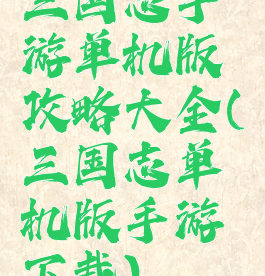 三国志手
游单机版
攻略大全(
三国志单
机版手游
下载)